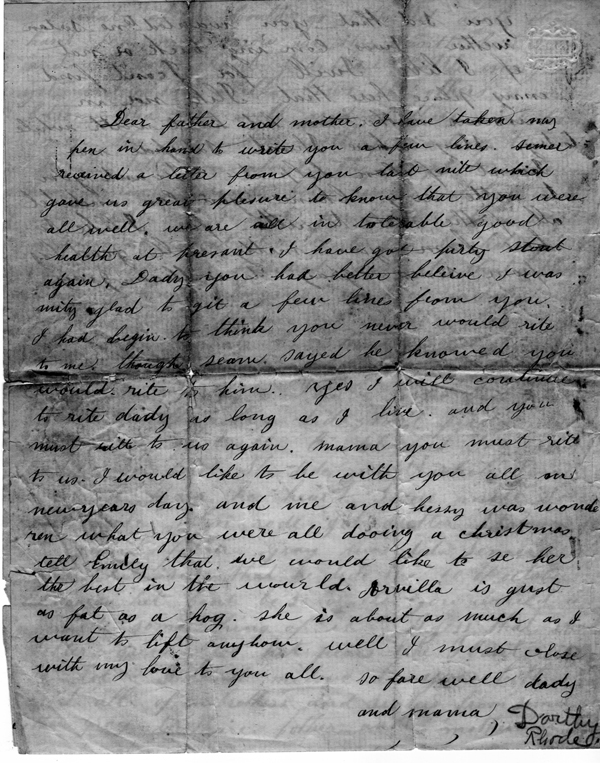 Dear father and mother. I have taken my
pen in hand to write you a few lines. semer
received a letter from you last nite which
gave us great plesure to know that you were
all well. we are all in tolerable good
health at presant. I have got purty stout
again. Dady you had better beleive I was
mity glad to git a few lines from you.
I had begin to think you never would rite
to me. though seam sayed he knowed you
would rite to him. yes I will continue
to rite dady as long as I live. and you
must rite to us again. mama you must rite
to us. I would like to be with you all on
newyears day. and me and hessy was wonde
ren what you were all dooing a christmas.
tell Emily that we would like to se her
the best in the wourld. Arvilla is gust
as fat as a hog. she is about as much as I
want to lift anyhow. well I must close
with my love to you all. so fare well dady
and mama,
Dorthy
Rhodes